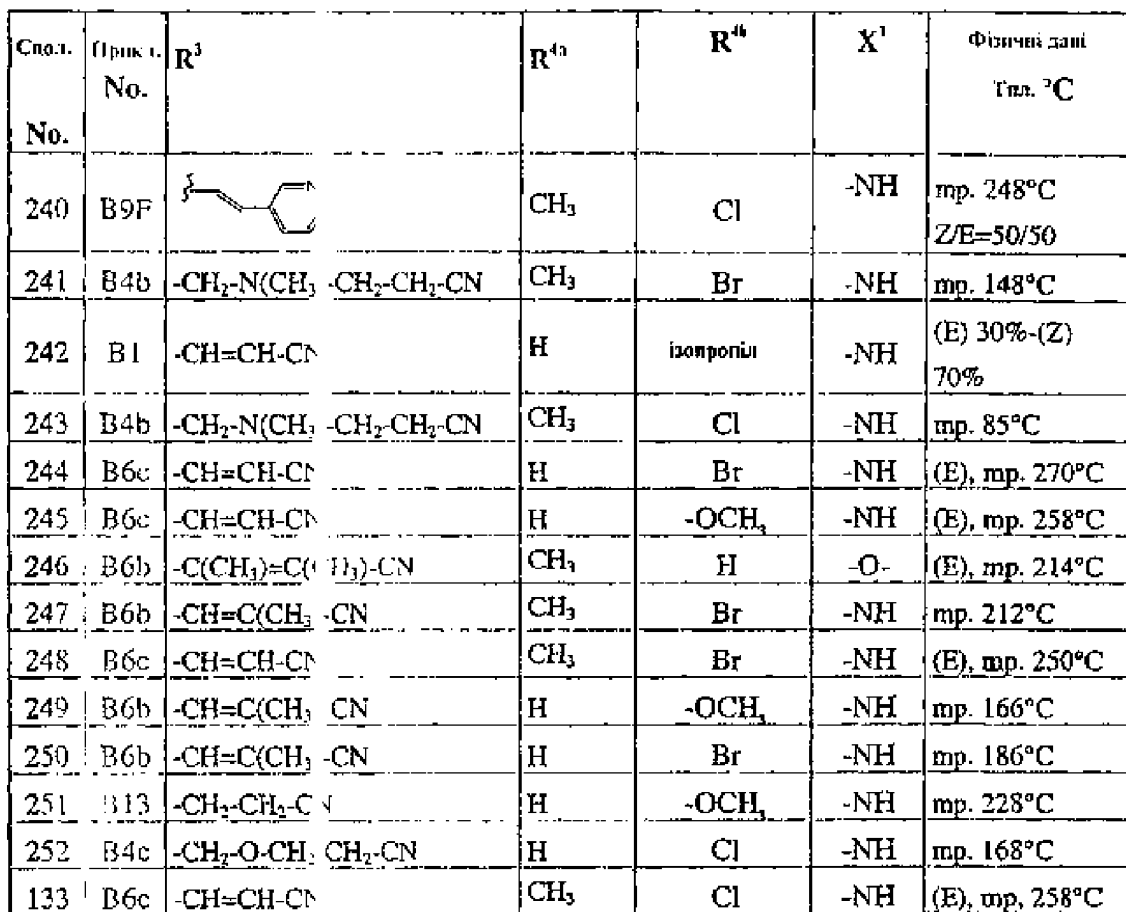 Спол. No. Прикл. No. R³ R⁴ᵃ R⁴ᵇ X¹ Фізичні дані Тпл. °C
240 B9F N CH₃ Cl -NH mp. 248°C Z/E=50/50
241 B4b -CH₂-N(CH₃ -CH₂-CH₂-CN CH₃ Br -NH mp. 148°C
242 B1 -CH=CH-CN H ізопропіл -NH (E) 30%-(Z) 70%
243 B4b -CH₂-N(CH₃ -CH₂-CH₂-CN CH₃ Cl -NH mp. 85°C
244 B6c -CH=CH-CN H Br -NH (E), mp. 270°C
245 B6c -CH=CH-CN H -OCH₃ -NH (E), mp. 258°C
246 B6b -C(CH₃)=C(CH₃)-CN CH₃ H -O- (E), mp. 214°C
247 B6b -CH=C(CH₃ -CN CH₃ Br -NH mp. 212°C
248 B6c -CH=CH-CN CH₃ Br -NH (E), mp. 250°C
249 B6b -CH=C(CH₃ CN H -OCH₃ -NH mp. 166°C
250 B6b -CH=C(CH₃ -CN H Br -NH mp. 186°C
251 B13 -CH₂-CH₂-CN H -OCH₃ -NH mp. 228°C
252 B4c -CH₂-O-CH₂ CH₂-CN H Cl -NH mp. 168°C
133 B6c -CH=CH-CN CH₃ Cl -NH (E), mp, 258°C